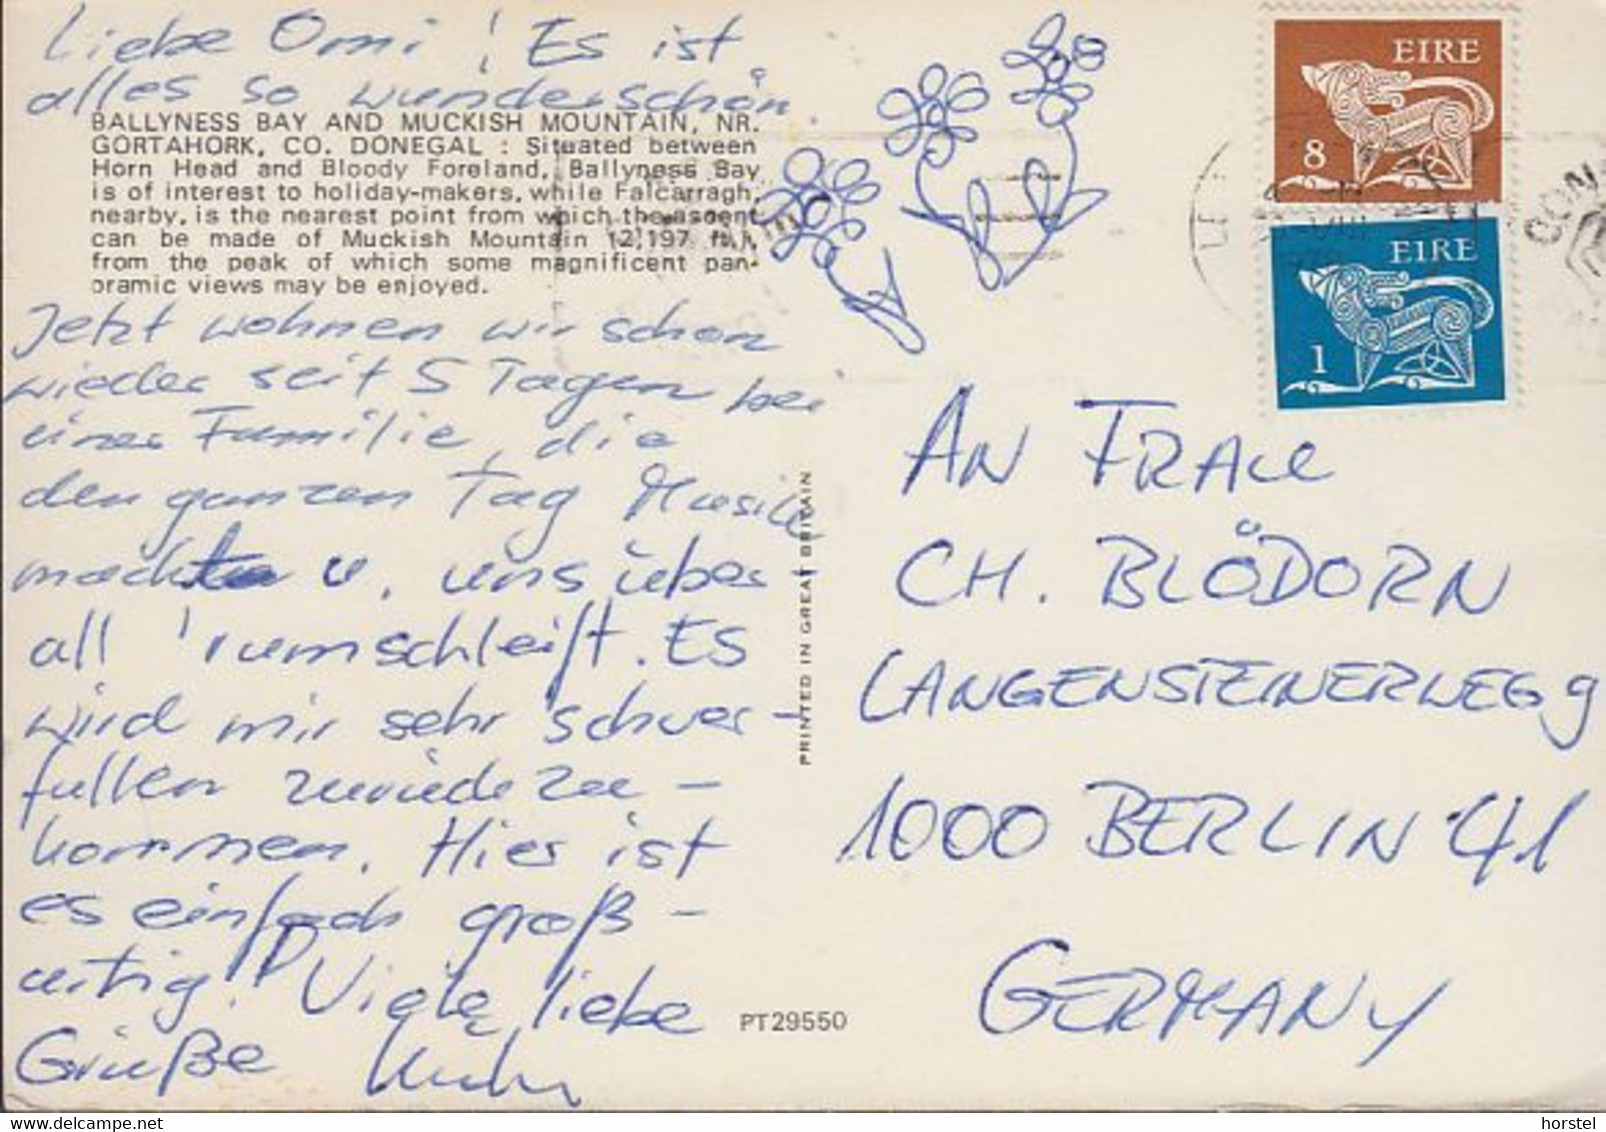 Liebe Omi! Es ist
alles so wunderschön
BALLYNESS BAY AND MUCKISH MOUNTAIN, NR.
GORTAHORK, CO. DONEGAL : Situated between
Horn Head and Bloody Foreland, Ballyness Bay
is of interest to holiday-makers, while Falcarragh,
nearby, is the nearest point from which the ascent
can be made of Muckish Mountain (2,197 ft.),
from the peak of which some magnificent pan-
oramic views may be enjoyed.
Jetzt wohnen wir schon
wieder seit 5 Tagen bei
einer Familie, die
den ganzen Tag Musik
macht u. uns über
all 'rumschleift. Es
wird mir sehr schwer-
fallen zurückzu-
kommen. Hier ist
es einfach groß-
artig! Viele liebe
Grüße
PRINTED IN GREAT BRITAIN
PT29550
EIRE
8
EIRE
1
AN FRAU
CH. BLÖDORN
LANGENSTEINERWEG 9
1000 BERLIN 41
GERMANY
horstel